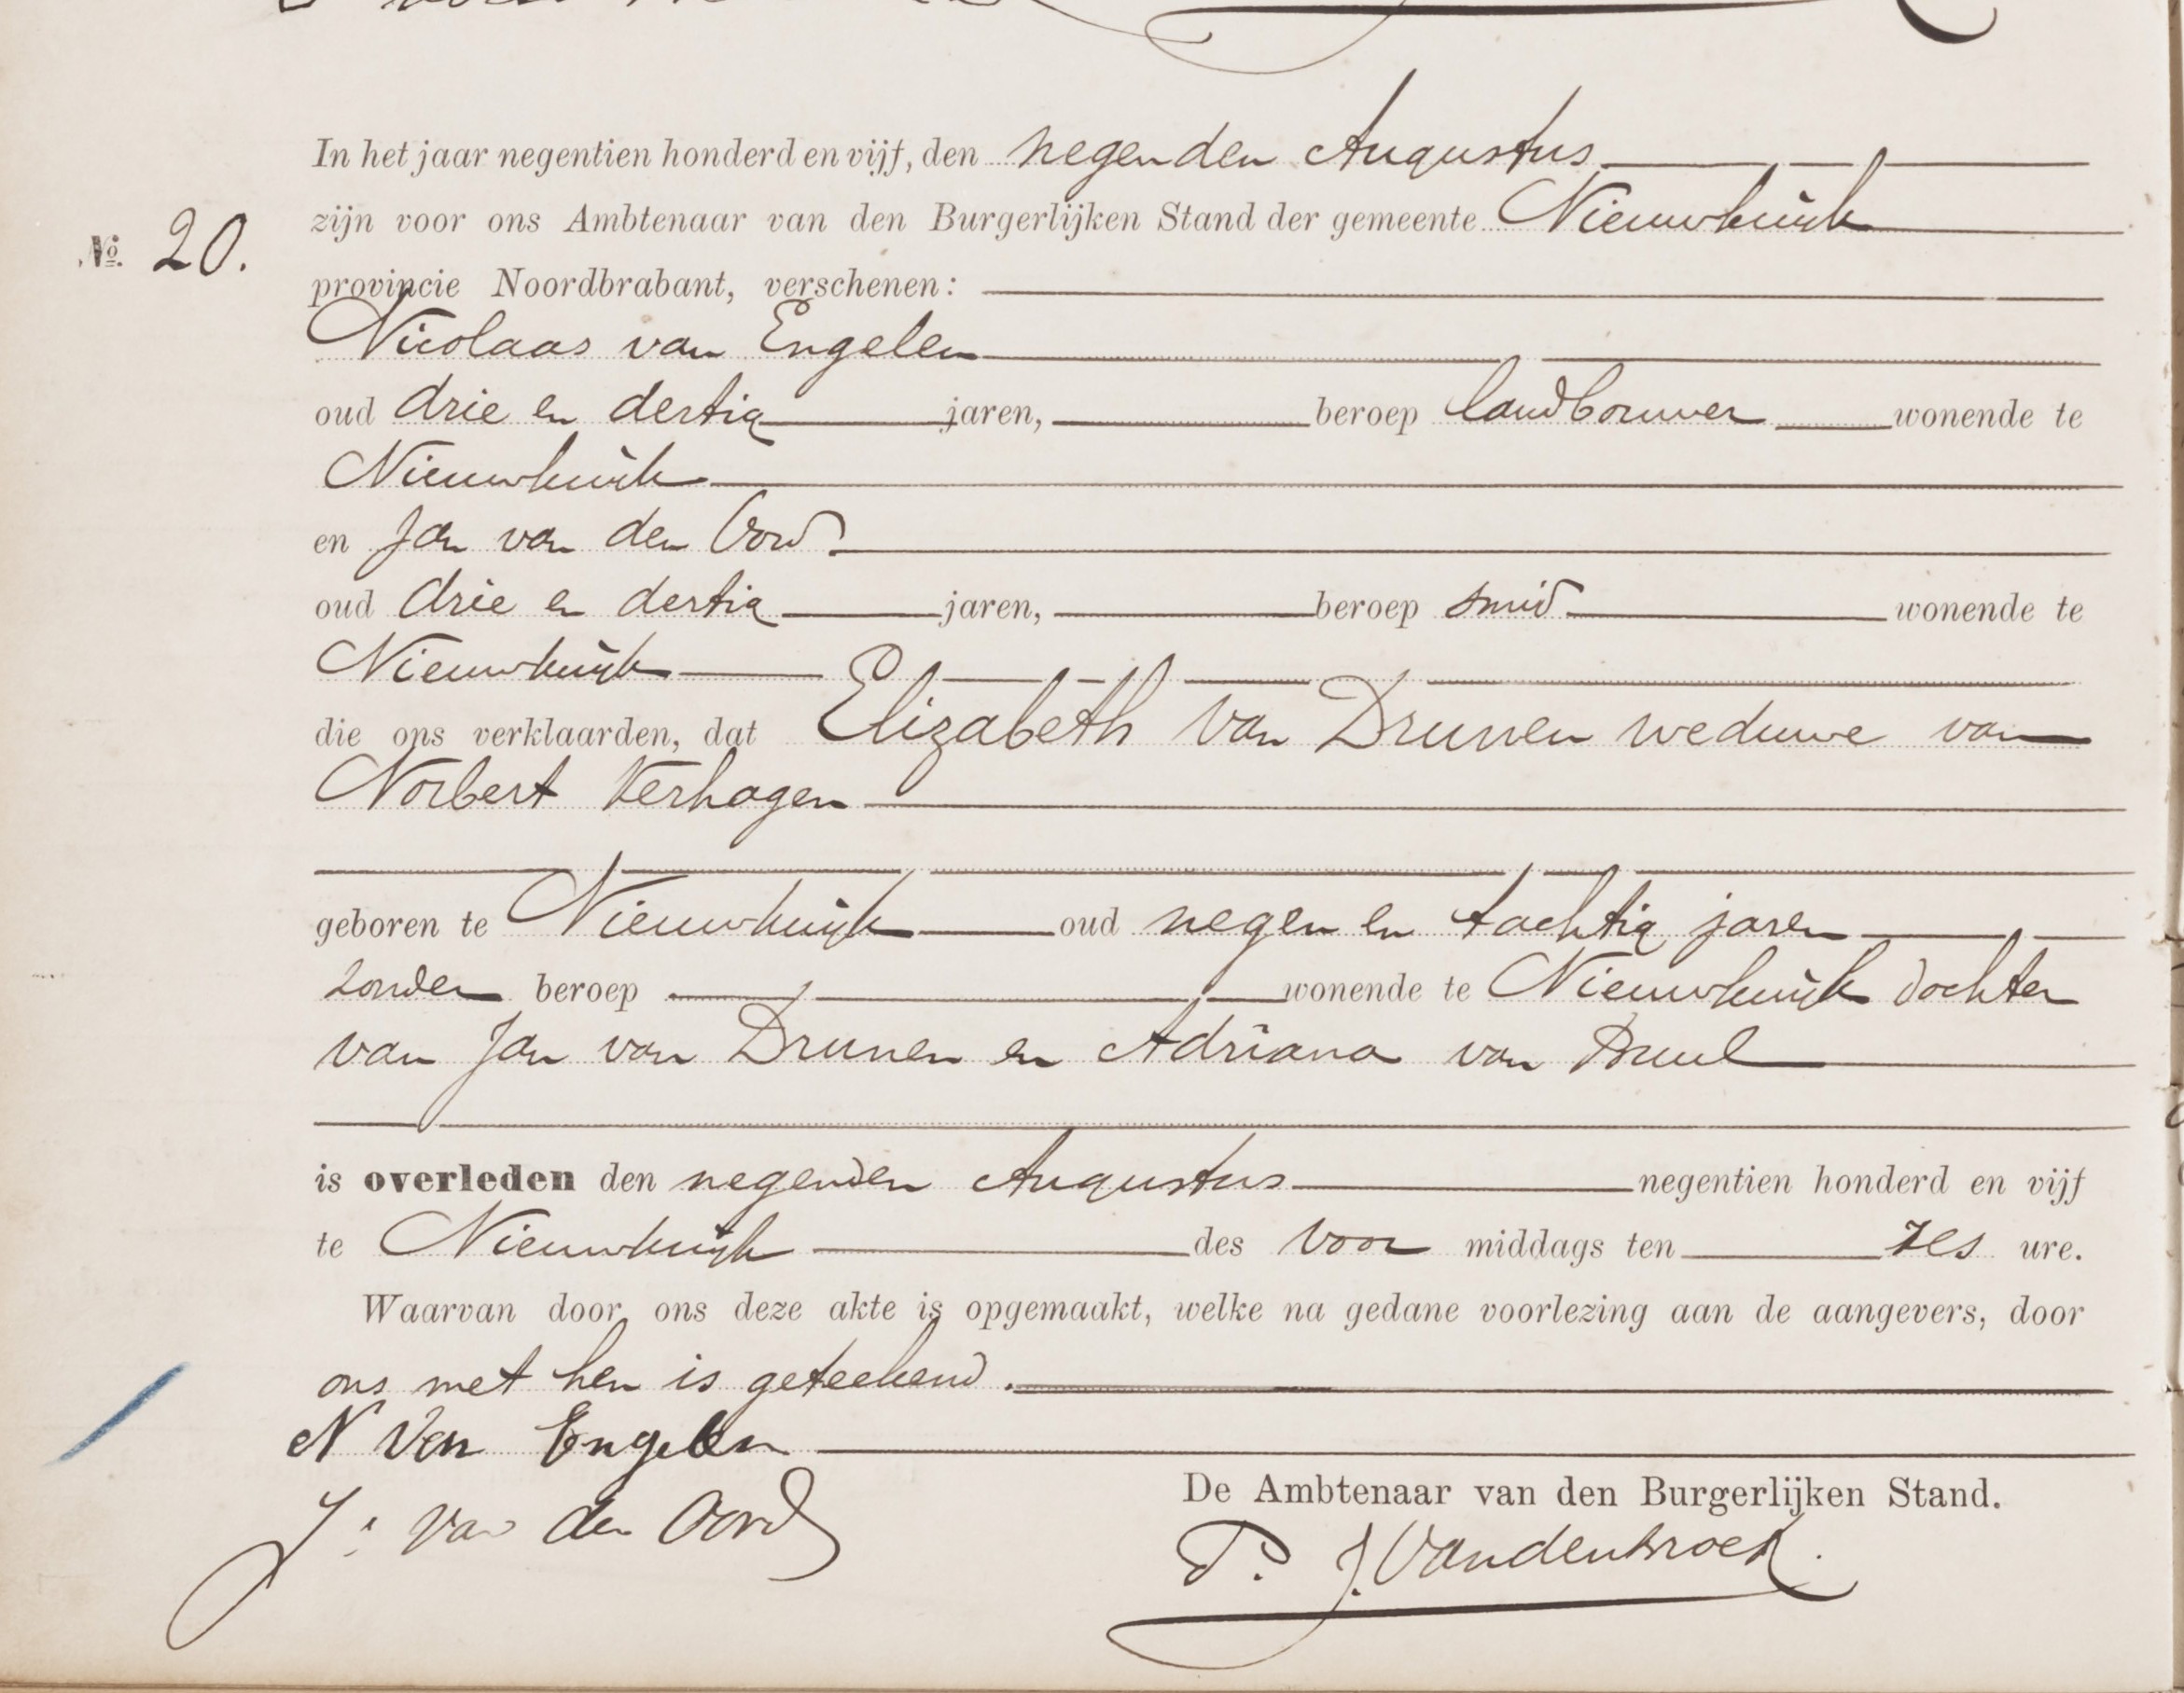 In het jaar negentien honderd en vijf, den negenden Augustus
zijn voor ons Ambtenaar van den Burgerlijken Stand der gemeente Nieuwkuijk
No. 20.
provincie Noordbrabant, verschenen:
Nicolaas van Engelen
oud drie en dertig jaren, beroep landbouwer wonende te
Nieuwkuijk
en Jan van den Oord
oud drie en dertig jaren, beroep smid wonende te
Nieuwkuijk
die ons verklaarden, dat Elizabeth van Drunen weduwe van
Norbert Verhagen
geboren te Nieuwkuijk oud negen en tachtig jaren
zonder beroep wonende te Nieuwkuijk dochter
van Jan van Drunen en Adriana van
is overleden den negenden Augustus negentien honderd en vijf
te Nieuwkuijk des voor middags ten zes ure.
Waarvan door ons deze akte is opgemaakt, welke na gedane voorlezing aan de aangevers, door
ons met hen is geteekend.
N Van Engelen
De Ambtenaar van den Burgerlijken Stand.
J. van den Oord
P. J. Vandenbroek.